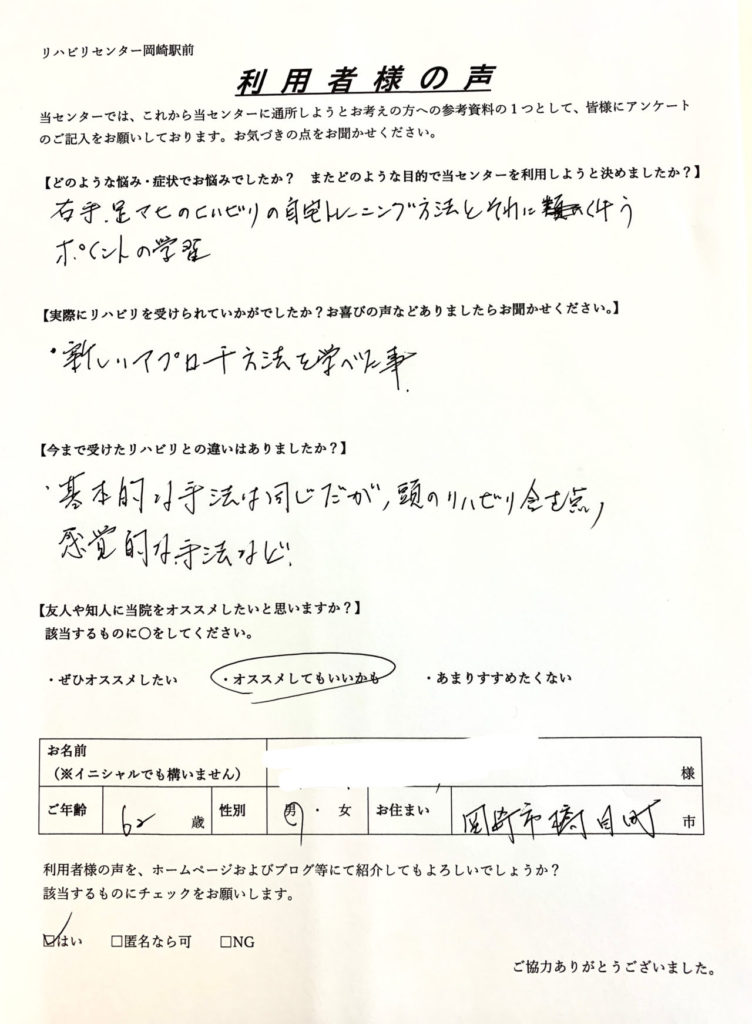 リハビリセンター岡崎駅前
利用者様の声
当センターでは、これから当センターに通所しようとお考えの方への参考資料の1つとして、皆様にアンケート
のご記入をお願いしております。お気づきの点をお聞かせください。
【どのような悩み・症状でお悩みでしたか？　またどのような目的で当センターを利用しようと決めましたか？】
右手.足マヒのリハビリの自宅トレーニング方法とそれに伴う
ポイントの学習
【実際にリハビリを受けられていかがでしたか？お喜びの声などありましたらお聞かせください。】
・新しいアプローチ方法を学べた事.
【今まで受けたリハビリとの違いはありましたか？】
・基本的な手法は同じだが,頭のリハビリ含む点,
感覚的な手法など.
【友人や知人に当院をオススメしたいと思いますか？】
該当するものに〇をしてください。
・ぜひオススメしたい　・オススメしてもいいかも　・あまりすすめたくない
お名前
（※イニシャルでも構いません）　様
ご年齢　62歳　性別　男・女　お住まい　岡崎市橋目町　市
利用者様の声を、ホームページおよびブログ等にて紹介してもよろしいでしょうか？
該当するものにチェックをお願いします。
☑はい　□匿名なら可　□NG
ご協力ありがとうございました。